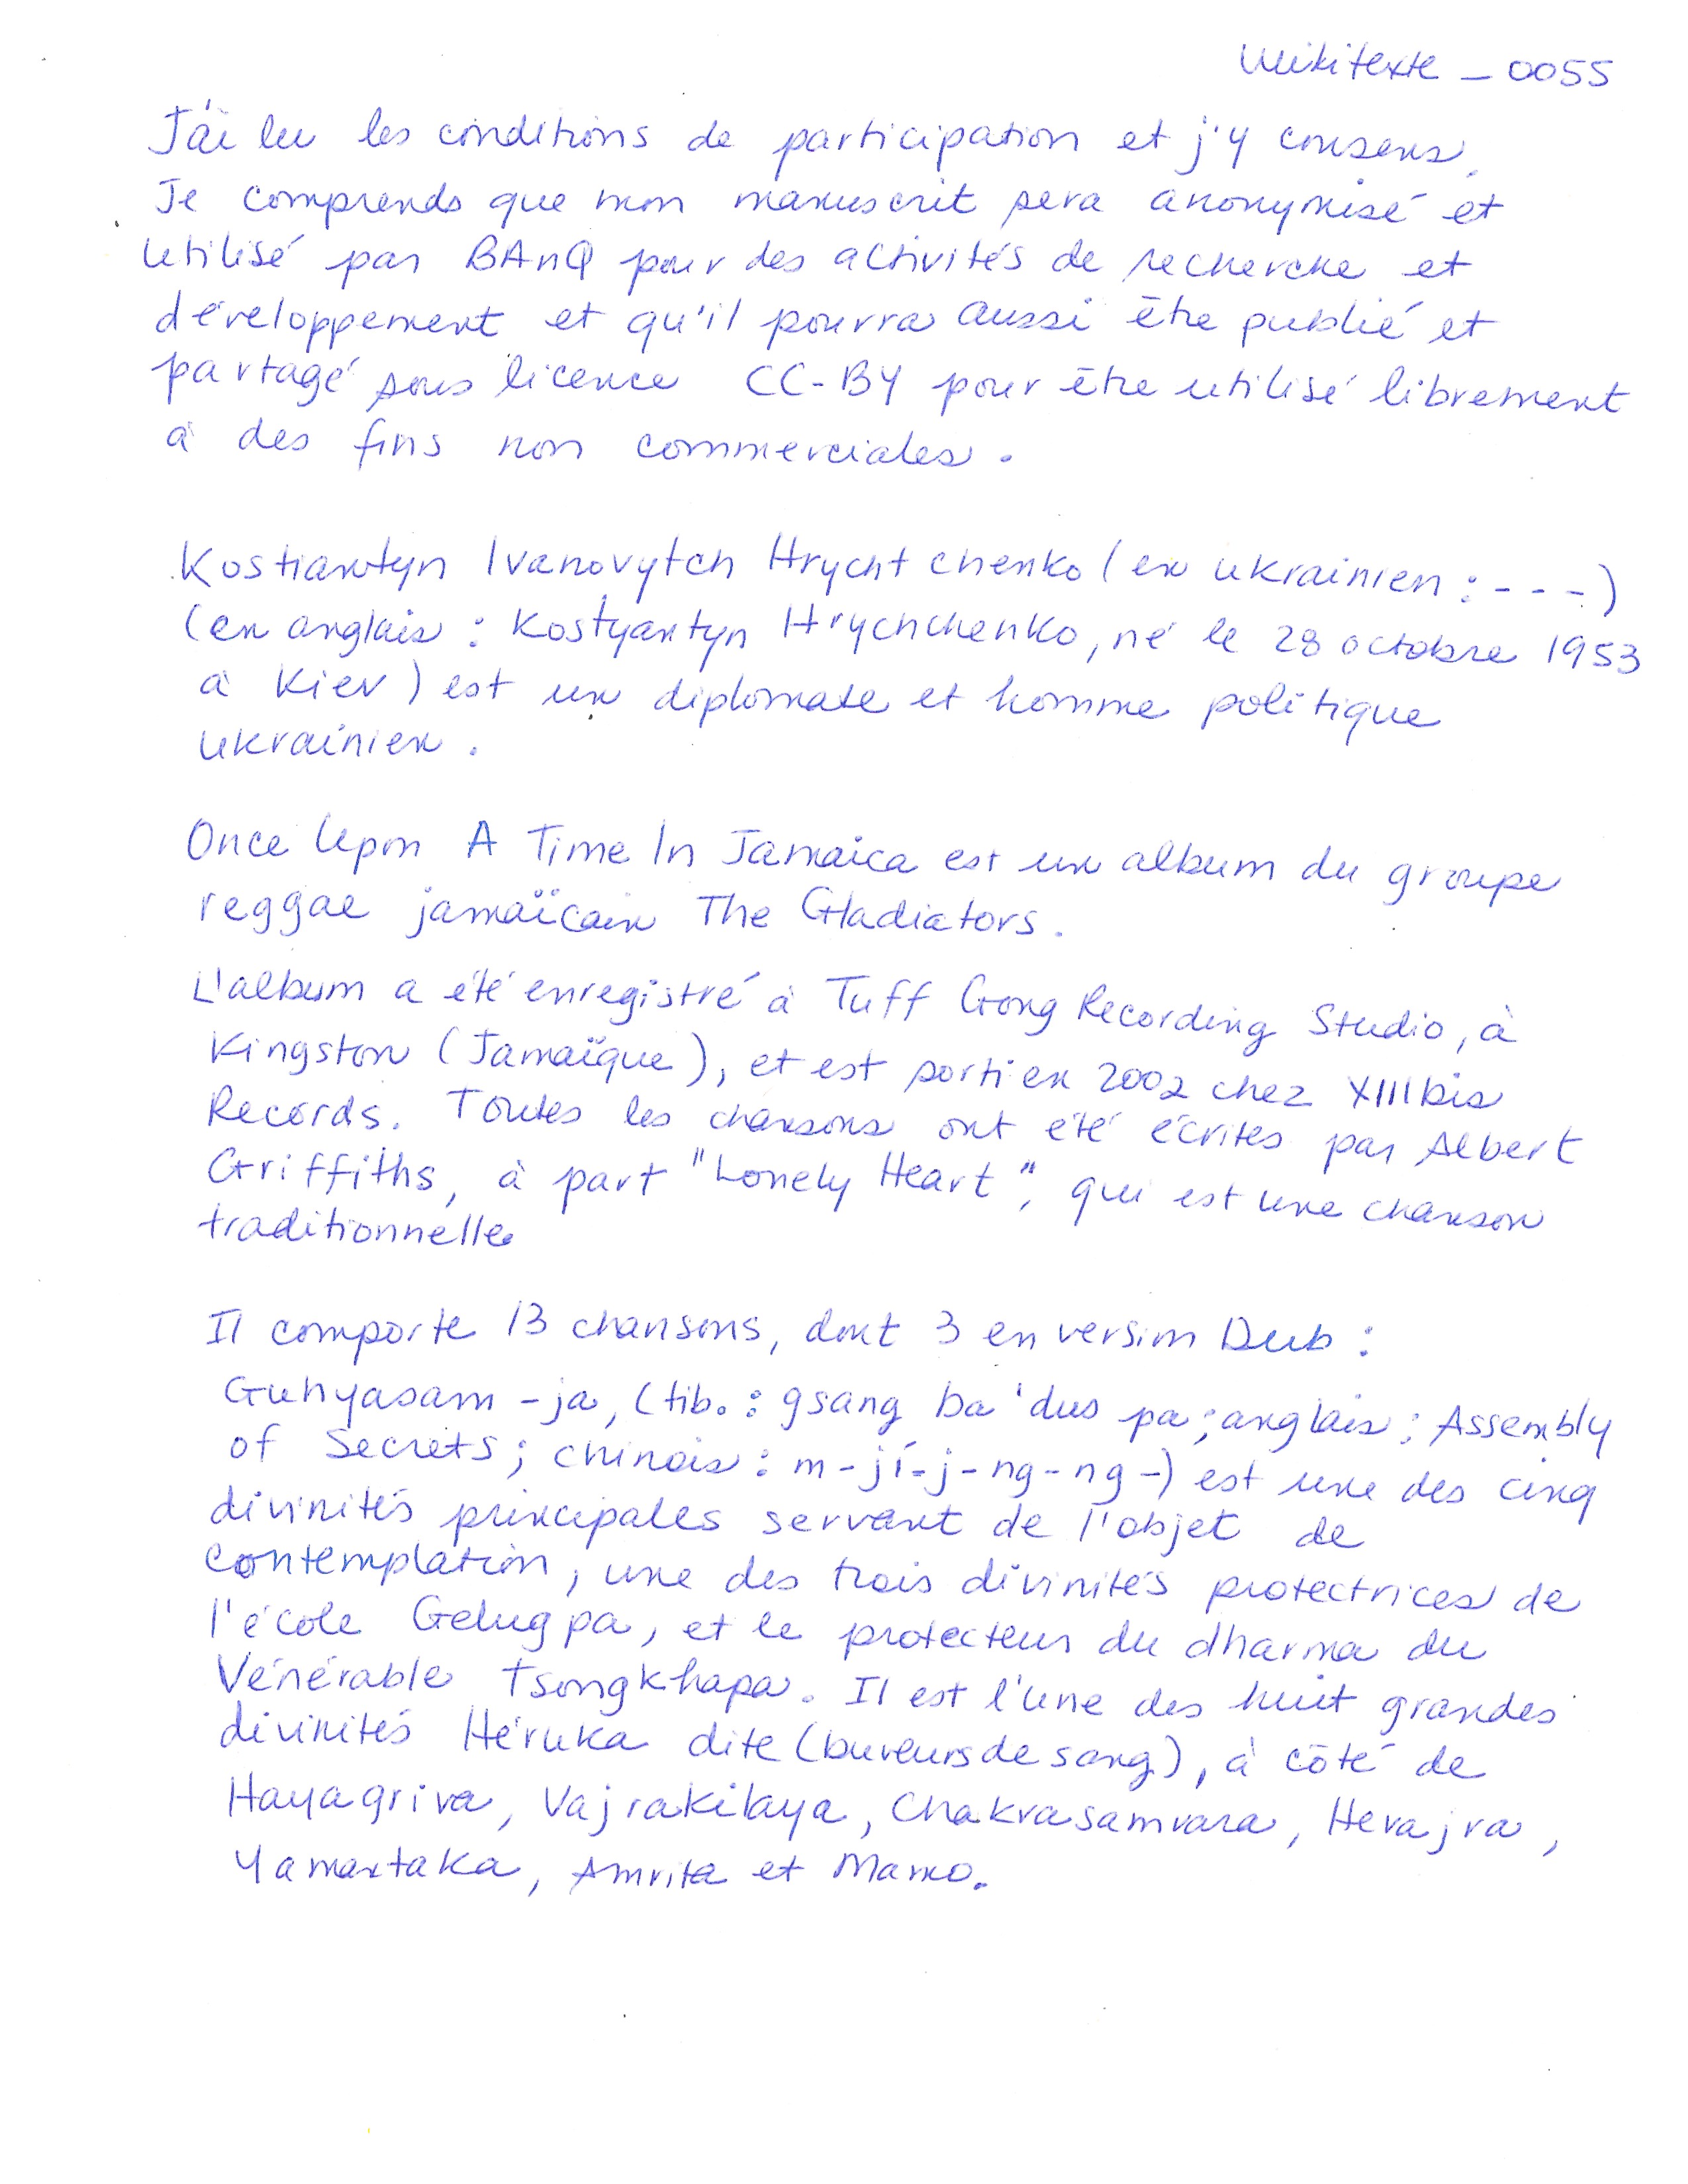 Wikitexte _ 0055
J'ai lu les conditions de participation et j'y consens.
Je comprends que mon manuscrit sera anonymisé et
utilisé par BAnQ pour des activités de recherche et
développement et qu'il pourra aussi être publié et
partagé sous licence CC-BY pour être utilisé librement
à des fins non commerciales.
Kostiantyn Ivanovytch Hrychtchenko (en ukrainien : - - -)
(en anglais : Kostyantyn Hrychchenko, né le 28 octobre 1953
à Kiev) est un diplomate et homme politique
ukrainien.
Once Upon A Time In Jamaica est un album du groupe
reggae jamaïcain The Gladiators.
L'album a été enregistré à Tuff Gong Recording Studio, à
Kingston (Jamaïque), et est sorti en 2002 chez XIIIbis
Records. Toutes les chansons ont été écrites par Albert
Griffiths, à part "Lonely Heart", qui est une chanson
traditionnelle.
Il comporte 13 chansons, dont 3 en version Dub :
Guhyasam-ja, (tib. : gsang ba 'dus pa ; anglais : Assembly
of Secrets ; chinois : m-jí-j-ng-ng-) est une des cinq
divinités principales servant de l'objet de
contemplation, une des trois divinités protectrices de
l'école Gelugpa, et le protecteur du dharma du
Vénérable Tsongkhapa. Il est l'une des huit grandes
divinités Héruka dite (buveurs de sang), à côté de
Hayagriva, Vajrakilaya, Chakrasamvara, Hevajra,
Yamantaka, Amrita et Mamo.